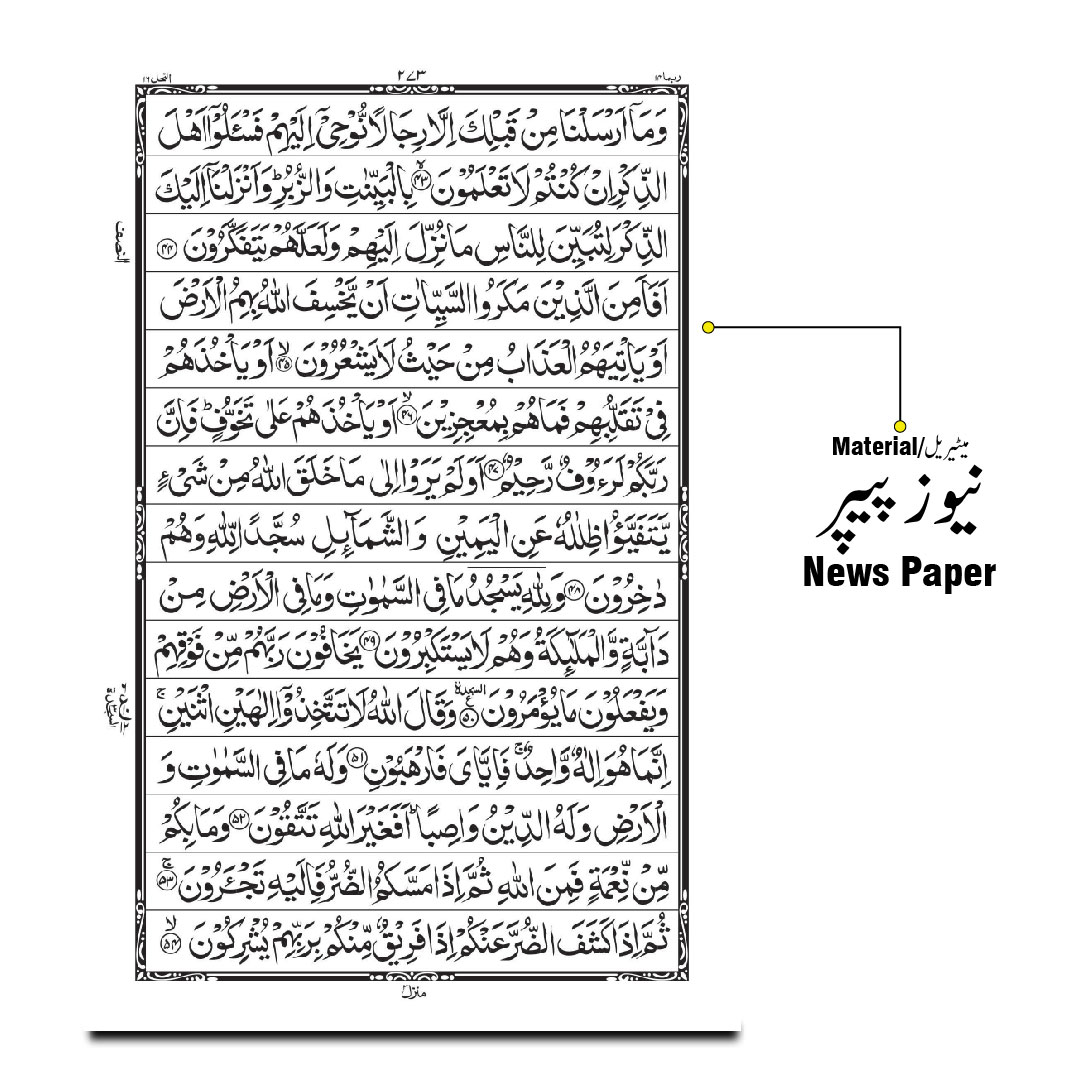 ربما ١٤
٢٧٣
النحل ١٦
وَمَآ اَرۡسَلۡنَا مِنۡ قَبۡلِكَ اِلَّا رِجَالًا نُّوۡحِىۡۤ اِلَيۡهِمۡ فَسۡـَٔلُوۡۤا اَهۡلَ
الذِّكۡرِ اِنۡ كُنۡتُمۡ لَا تَعۡلَمُوۡنَۙ‏ ﴿۴۳﴾ بِالۡبَيِّنٰتِ وَالزُّبُرِؕ وَاَنۡزَلۡنَاۤ اِلَيۡكَ
الذِّكۡرَ لِتُبَيِّنَ لِلنَّاسِ مَا نُزِّلَ اِلَيۡهِمۡ وَلَعَلَّهُمۡ يَتَفَكَّرُوۡنَ‏ ﴿۴۴﴾
النصف
اَفَاَمِنَ الَّذِيۡنَ مَكَرُوا السَّيِّاٰتِ اَنۡ يَّخۡسِفَ اللّٰهُ بِهِمُ الۡاَرۡضَ
اَوۡ يَاۡتِيَهُمُ الۡعَذَابُ مِنۡ حَيۡثُ لَا يَشۡعُرُوۡنَۙ‏ ﴿۴۵﴾ اَوۡ يَاۡخُذَهُمۡ
فِىۡ تَقَلُّبِهِمۡ فَمَا هُمۡ بِمُعۡجِزِيۡنَۙ‏ ﴿۴۶﴾ اَوۡ يَاۡخُذَهُمۡ عَلٰى تَخَوُّفٍؕ فَاِنَّ
رَبَّكُمۡ لَرَءُوۡفٌ رَّحِيۡمٌ‏ ﴿۴۷﴾ اَوَلَمۡ يَرَوۡا اِلٰى مَا خَلَقَ اللّٰهُ مِنۡ شَىۡءٍ
يَّتَفَيَّؤُا ظِلٰلُهٗ عَنِ الۡيَمِيۡنِ وَالشَّمَآٮِٕلِ سُجَّدًا لِّلّٰهِ وَهُمۡ
دٰخِرُوۡنَ‏ ﴿۴۸﴾ وَلِلّٰهِ يَسۡجُدُ مَا فِى السَّمٰوٰتِ وَمَا فِى الۡاَرۡضِ مِنۡ
دَآبَّةٍ وَّالۡمَلٰۤٮِٕكَةُ وَهُمۡ لَا يَسۡتَكۡبِرُوۡنَ‏ ﴿۴۹﴾ يَخَافُوۡنَ رَبَّهُمۡ مِّنۡ فَوۡقِهِمۡ
وَيَفۡعَلُوۡنَ مَا يُؤۡمَرُوۡنَ ۩ السجدة ﴿۵۰﴾ وَقَالَ اللّٰهُ لَا تَتَّخِذُوۡۤا اِلٰهَيۡنِ اثۡنَيۡنِۚ
اِنَّمَا هُوَ اِلٰهٌ وَّاحِدٌۚ فَاِيَّاىَ فَارۡهَبُوۡنِ‏ ﴿۵۱﴾ وَلَهٗ مَا فِى السَّمٰوٰتِ وَ
الۡاَرۡضِ وَلَهُ الدِّيۡنُ وَاصِبًاؕ اَفَغَيۡرَ اللّٰهِ تَتَّقُوۡنَ‏ ﴿۵۲﴾ وَمَا بِكُمۡ
مِّنۡ نِّعۡمَةٍ فَمِنَ اللّٰهِ ثُمَّ اِذَا مَسَّكُمُ الضُّرُّ فَاِلَيۡهِ تَجۡـَٔرُوۡنَۚ‏ ﴿۵۳﴾
ثُمَّ اِذَا كَشَفَ الضُّرَّ عَنۡكُمۡ اِذَا فَرِيۡقٌ مِّنۡكُمۡ بِرَبِّهِمۡ يُشۡرِكُوۡنَۙ‏ ﴿۵۴﴾
منزل
Material/میٹیریل
نیوز پیپر
News Paper